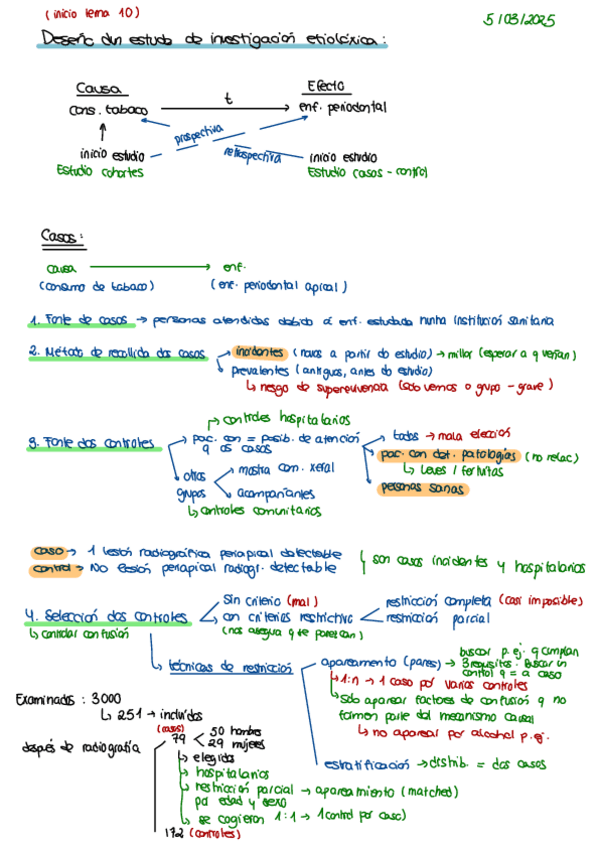 (inicio tema 10)
5/03/2025
Deseño dun estudo de investigación etiolóxica:
Causa
Efecto
cons. tabaco
t
enf. periodontal
prospectiva
retrospectiva
inicio estudio
inicio estudio
Estudio cohortes
Estudio casos - control
Casos:
causa
enf.
(consumo de tabaco)
(enf. periodontal apical)
1. Fonte de casos → persoas atendidas debido á enf. estudada nunha institución sanitaria
2. Método de recollida dos casos
incidentes (novos a partir do estudio) → millor (esperar a q veñan)
prevalentes (antiguos, antes do estudio)
↳ riesgo de supervivencia (sólo vemos o grupo - grave)
controles hospitalarios
3. Fonte dos controles
pac. con = posib. de atención q os casos
todos → mala elección
pac. con det. patologías (no relac)
↳ Leves / fortuitas
personas sanas
otros grupos
mostra com. xeral
acompañantes
↳ controles comunitarios
caso → 1 lesión radiográfica periapical detectable
control → No lesión periapical radiogr. detectable
son casos incidentes y hospitalarios
4. Selección dos controles
↳ controlar confusión
Sin criterio (mal)
con criterios restrictivos
(nos asegura q se parezcan)
restricción completa (casi imposible)
restricción parcial
técnicas de restricción
apareamento (pares) → buscar p. ej. q cumplan 3 requisitos. Buscar un control q = a caso
↳ 1:n → 1 caso por varios controles
↳ Sólo aparear factores de confusión q no formen parte del mecanismo causal
↳ no aparear por alcohol p.ej.
estratificación → distrib. = dos casos
Examinados: 3000
↳ 251 → incluídos
después de radiografía
(casos)
79
50 hombres
29 mujeres
↳ elegidos
↳ hospitalarios
↳ restricción parcial → apareamiento (matched) por edad y sexo
↳ se cogieron 1:1 → 1 control por caso)
172 (controles)